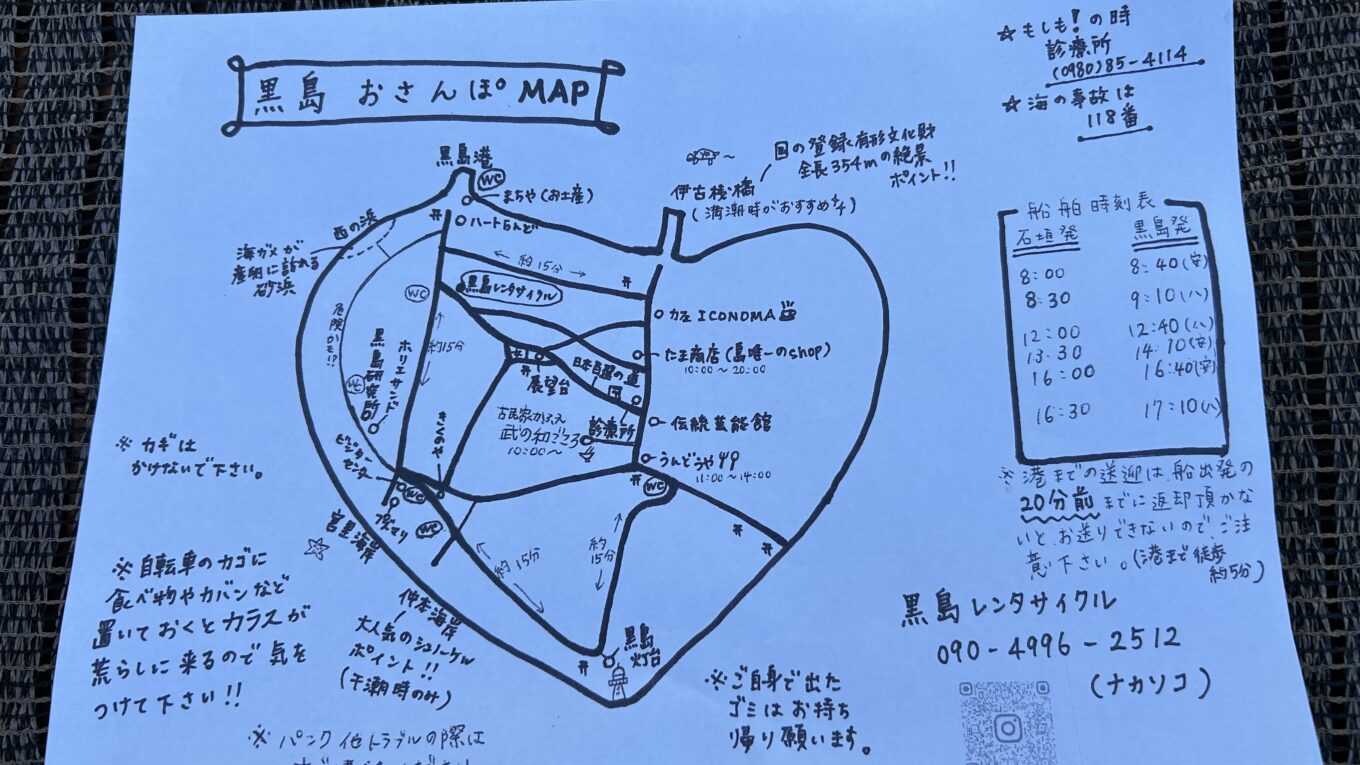 黒島 おさんぽ MAP
☆もしも!の時
診療所
(0980)85-4114
☆海の事故は
118番
黒島港
WC
まちや(お土産)
ハートらんど
伊古桟橋
(満潮時がおすすめ)
国の登録有形文化財
全長354mの絶景
ポイント!!
西の浜
海ガメが
産卵に訪れる
砂浜
危険かも!?
約15分
黒島レンタサイクル
WC
約15分
カフェ ICONOMA
たま商店(島唯一のshop)
10:00〜20:00
展望台
日本百選の道
診療所
古民家かふぇ
武の和ごころ
10:00〜
伝統芸能館
うんどうや
11:00〜14:00
WC
ホリエサンド
黒島研究所
WC
きくのや
ビジターセンター
WC
宮里海岸
WC
約15分
約15分
仲本海岸
大人気のシュノーケル
ポイント!!
(干潮時のみ)
黒島
灯台
船舶時刻表
石垣発 黒島発
8:00 8:40(安)
8:30 9:10(八)
12:00 12:40(八)
13:30 14:10(安)
16:00 16:40(安)
16:30 17:10(八)
※港までの送迎は、船出発の
20分前までに返却頂かな
いと、お送りできないので、ご注
意下さい。(港まで徒歩
約5分)
黒島レンタサイクル
090-4996-2512
(ナカソコ)
※カギは
かけないで下さい。
※自転車のカゴに
食べ物やカバンなど
置いておくとカラスが
荒らしに来るので気を
つけて下さい!!
※ご自身で出た
ゴミはお持ち
帰り願います。
※パンク他トラブルの際は